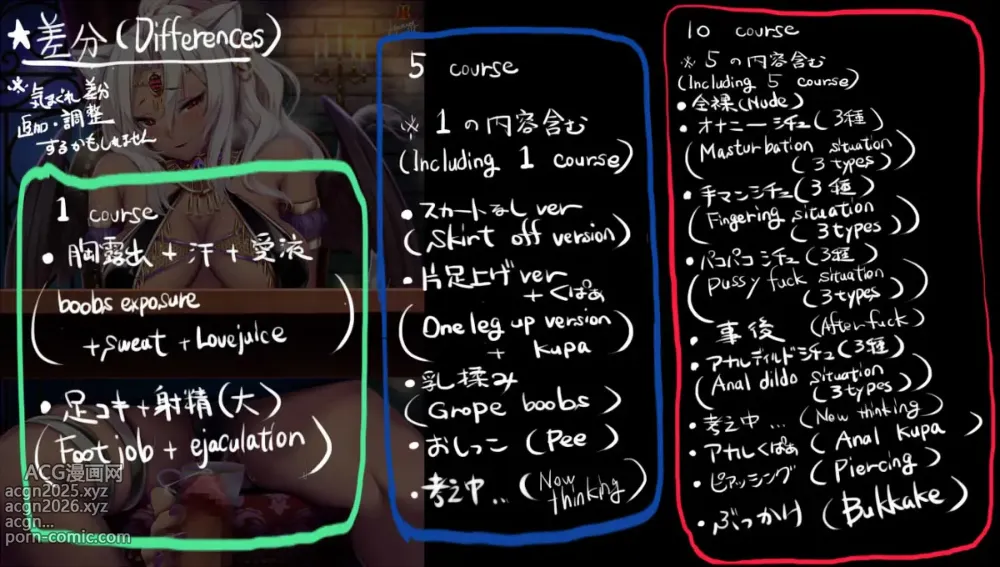 ★差分(Differences)
※気まぐれ差分
追加・調整
するかもしれません
1 course
• 胸露出 + 汗 + 愛液
(boobs exposure
+ sweat + Lovejuice)
• 足コキ + 射精(大)
(Foot job + ejaculation)
ACG漫画网
acgn2025.xyz
acgn2026.xyz
acgn...
porn-comic.com
5 course
※ 1の内容含む
(Including 1 course)
• スカートなし ver
(Skirt off version)
• 片足上げ ver
+ くぱぁ
(One leg up version
+ kupa)
• 乳揉み
(Grope boobs)
• おしっこ (Pee)
• 考え中... (Now
thinking)
10 course
※ 5の内容含む
(Including 5 course)
• 全裸(Nude)
• オナニーシチュ(3種)
(Masturbation situation
(3 types))
• 手マンシチュ(3種)
(Fingering situation
(3 types))
• パコパコシチュ(3種)
(Pussy fuck situation
(3 types))
• 事後 (After fuck)
• アナルディルドシチュ(3種)
(Anal dildo situation
(3 types))
• 考え中... (Now thinking)
• アナルくぱぁ (Anal kupa)
• ピアッシング (Piercing)
• ぶっかけ (Bukkake)